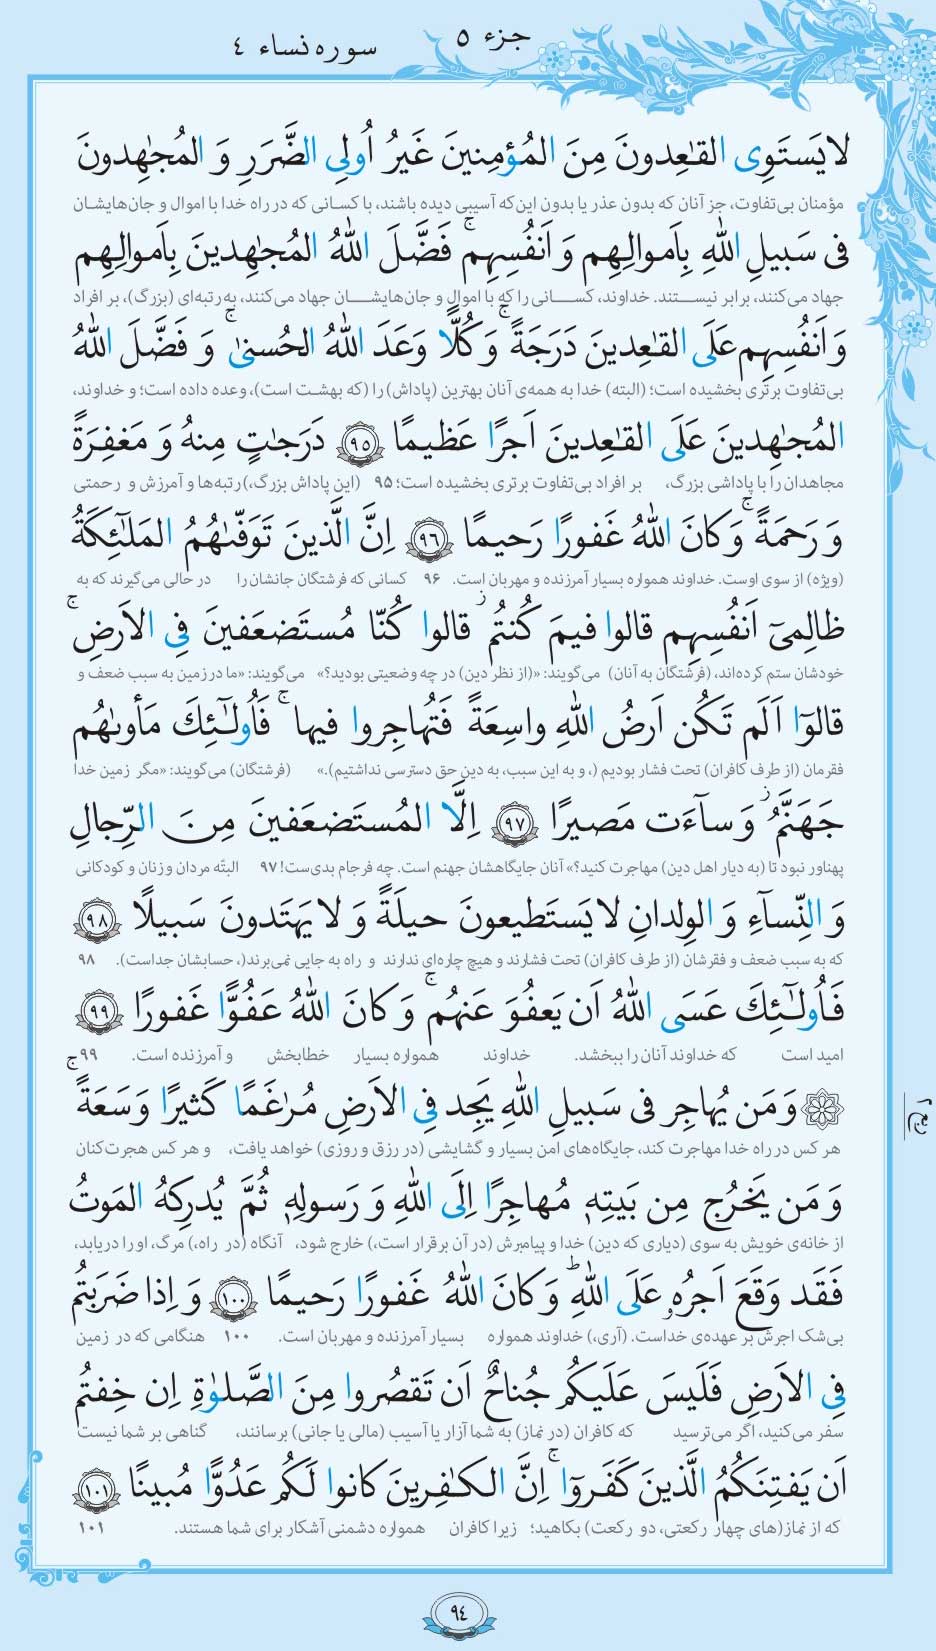 جزء ۵
سوره نساء ۴
لایَستَوِی القٰعِدونَ مِنَ المُؤمِنینَ غَیرُ اُولِی الضَّرَرِ وَ المُجٰهِدونَ
مؤمنان بی‌تفاوت، جز آنان که بدون عذر یا بدون این‌که آسیبی دیده باشند، با کسانی که در راه خدا با اموال و جان‌هایشان
فی سَبیلِ اللّٰهِ بِاَموالِهِم وَ اَنفُسِهِم ۚ فَضَّلَ اللّٰهُ المُجٰهِدینَ بِاَموالِهِم
جهاد می‌کنند، برابر نیستند. خداوند، کسانی را که با اموال و جان‌هایشان جهاد می‌کنند، به رتبه‌ای (بزرگ)، بر افراد
وَ اَنفُسِهِم عَلَی القٰعِدینَ دَرَجَةً ۚ وَ کُلًّا وَعَدَ اللّٰهُ الحُسنیٰ ۚ وَ فَضَّلَ اللّٰهُ
بی‌تفاوت برتری بخشیده است؛ (البته) خدا به همه‌ی آنان بهترین (پاداش) را (که بهشت است)، وعده داده است؛ و خداوند،
المُجٰهِدینَ عَلَی القٰعِدینَ اَجرًا عَظیمًا ﴿۹۵﴾ دَرَجٰتٍ مِنهُ وَ مَغفِرَةً
مجاهدان را با پاداشی بزرگ، بر افراد بی‌تفاوت برتری بخشیده است؛ ۹۵ (این پاداش بزرگ،) رتبه‌ها و آمرزش و رحمتی
وَ رَحمَةً ۚ وَ کانَ اللّٰهُ غَفورًا رَحیمًا ﴿۹۶﴾ اِنَّ الَّذینَ تَوَفّٰىٰهُمُ المَلٰٓئِکَةُ
(ویژه) از سوی اوست. خداوند همواره بسیار آمرزنده و مهربان است. ۹۶ کسانی که فرشتگان جانشان را در حالی می‌گیرند که به
ظالِمیٓ اَنفُسِهِم قالوا فیمَ کُنتُم ز قالوا کُنّا مُستَضعَفینَ فِی الاَرضِ ۚ
خودشان ستم کرده‌اند، (فرشتگان به آنان) می‌گویند: «(از نظر دین) در چه وضعیتی بودید؟» می‌گویند: «ما در زمین به سبب ضعف و
قالوٓا اَلَم تَکُن اَرضُ اللّٰهِ واسِعَةً فَتُهاجِروا فیها ۚ فَاُولٰٓئِكَ مَأوىٰهُم
فقرمان (از طرف کافران) تحت فشار بودیم (، و به این سبب، به دین حق دسترسی نداشتیم).» (فرشتگان) می‌گویند: «مگر زمین خدا
جَهَنَّمُ ز وَ سآءَت مَصیرًا ﴿۹۷﴾ اِلَّا المُستَضعَفینَ مِنَ الرِّجالِ
پهناور نبود تا (به دیار اهل دین) مهاجرت کنید؟» آنان جایگاهشان جهنم است. چه فرجام بدی‌ست! ۹۷ البتّه مردان و زنان و کودکانی
وَ النِّسآءِ وَ الوِلدانِ لا یَستَطیعونَ حیلَةً وَ لا یَهتَدونَ سَبیلًا ﴿۹۸﴾
که به سبب ضعف و فقرشان (از طرف کافران) تحت فشارند و هیچ چاره‌ای ندارند و راه به جایی نمی‌برند (، حسابشان جداست). ۹۸
فَاُولٰٓئِكَ عَسَی اللّٰهُ اَن یَعفُوَ عَنهُم ۚ وَ کانَ اللّٰهُ عَفُوًّا غَفورًا ﴿۹۹﴾
امید است که خداوند آنان را ببخشد. خداوند همواره بسیار خطابخش و آمرزنده است. ۹۹
۞ وَ مَن یُهاجِر فی سَبیلِ اللّٰهِ یَجِد فِی الاَرضِ مُرٰغَمًا کَثیرًا وَ سَعَةً ۚ
هر کس در راه خدا مهاجرت کند، جایگاه‌های امن بسیار و گشایشی (در رزق و روزی) خواهد یافت، و هر کس هجرت‌کنان
وَ مَن یَخرُج مِن بَیتِهٖ مُهاجِرًا اِلَی اللّٰهِ وَ رَسولِهٖ ثُمَّ یُدرِکهُ المَوتُ
از خانه‌ی خویش به سوی (دیاری که دین) خدا و پیامبرش (در آن برقرار است،) خارج شود، آنگاه (در راه،) مرگ، او را دریابد،
فَقَد وَقَعَ اَجرُهٗ عَلَی اللّٰهِ ؕ وَ کانَ اللّٰهُ غَفورًا رَحیمًا ﴿۱۰۰﴾ وَ اِذا ضَرَبتُم
بی‌شک اجرش بر عهده‌ی خداست. (آری،) خداوند همواره بسیار آمرزنده و مهربان است. ۱۰۰ هنگامی که در زمین
فِی الاَرضِ فَلَیسَ عَلَیکُم جُناحٌ اَن تَقصُروا مِنَ الصَّلوٰةِ اِن خِفتُم
سفر می‌کنید، اگر می‌ترسید که کافران (در نماز) به شما آزار یا آسیب (مالی یا جانی) برسانند، گناهی بر شما نیست
اَن یَفتِنَکُمُ الَّذینَ کَفَروٓا ۚ اِنَّ الکٰفِرینَ کانوا لَکُم عَدُوًّا مُبینًا ﴿۱۰۱﴾
که از نماز(های چهار رکعتی، دو رکعت) بکاهید؛ زیرا کافران همواره دشمنی آشکار برای شما هستند. ۱۰۱
۹۴